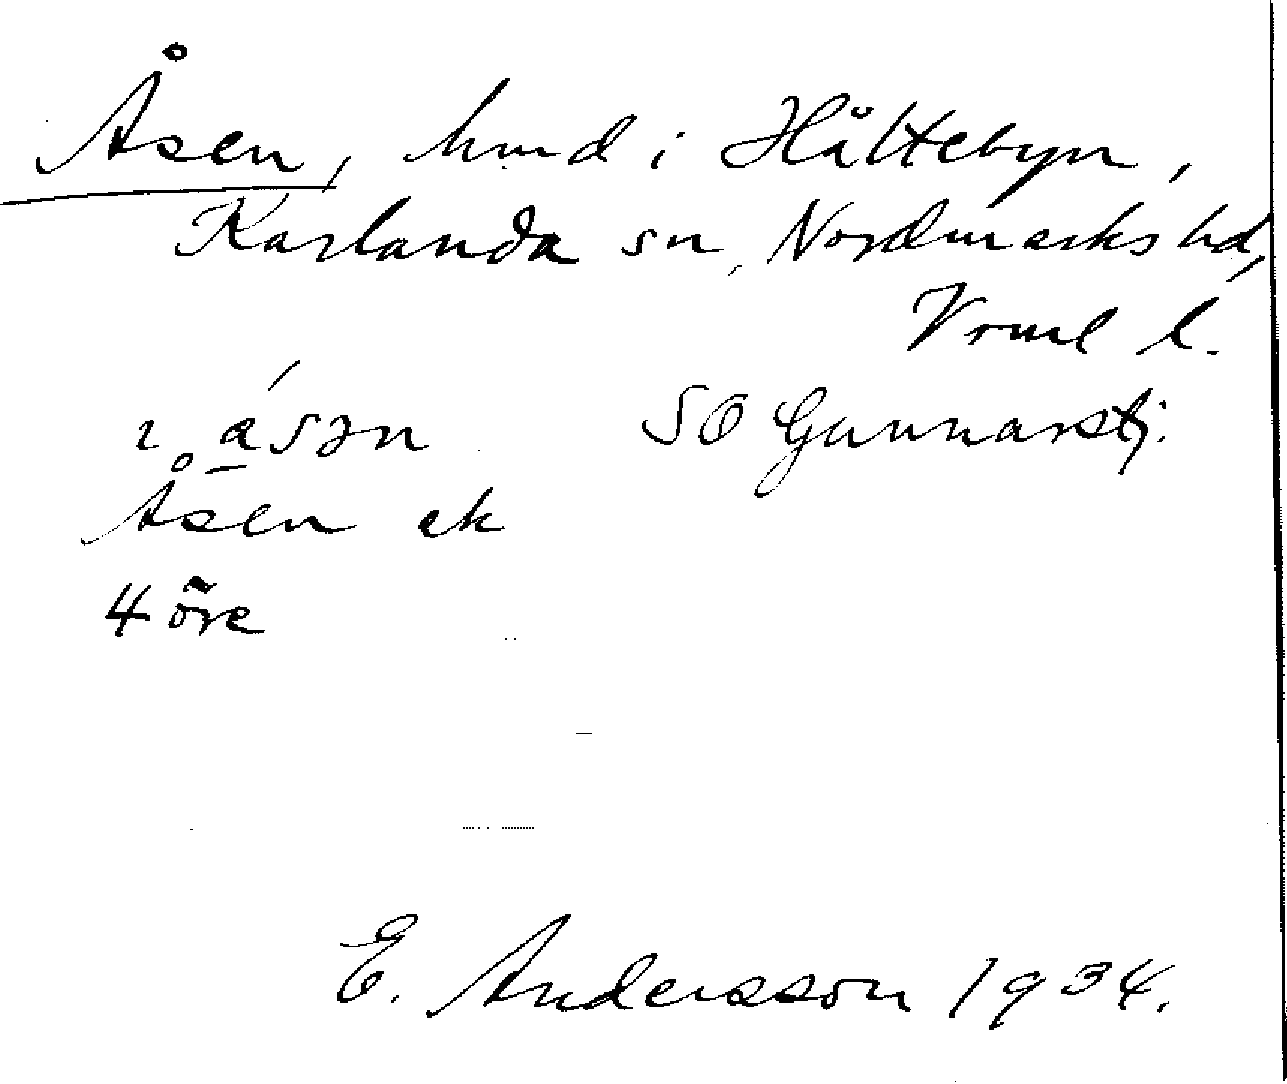 Åsen, hmd i Hältebyn,
Karlanda sn, Nordmarks hd,
Vrml l.
ı åsən SO Gunnarsbj.
Åsen ek
4 öre
E. Andersson 1934.